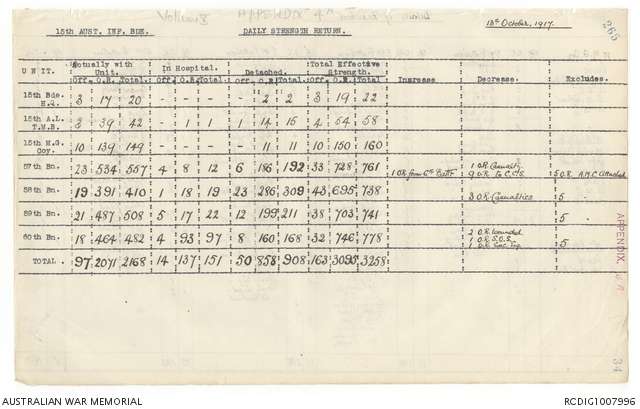 15th AUST. INF. BDE. DAILY STRENGTH RETURN. 13th October, 1917. 265
UNIT. Actually with Unit. In Hospital. Detached. Total Effective Strength. Increase Decrease. Excludes.
Off. O.R. Total. Off. O.R. Total. Off. O.R. Total. Off. O.R. Total.
15th Bde. H.Q. 3 17 20 - - - - 2 2 3 19 22
15th A.L. T.M.B. 3 39 42 - 1 1 1 14 15 4 54 58
15th M.G. Coy. 10 139 149 - - - - 11 11 10 150 160
57th Bn. 23 534 557 4 8 12 6 186 192 33 728 761 1 OR from Battn 1 O.R. Casualty 9 O.R. to C.C.S. 5 O.R. A.M.C. Attached
58th Bn. 19 391 410 1 18 19 23 286 309 43 695 738 3 O.R. Casualties 5 "
59th Bn. 21 487 508 5 17 22 12 199 211 38 703 741 5 "
60th Bn. 18 464 482 4 93 97 8 160 168 32 746 778 2 O.R. Wounded 1 O.R. S.O.S. 1 O.R. 5 "
TOTAL. 97 2071 2168 14 137 151 50 858 908 163 3095 3258
APPENDIX.
34
AUSTRALIAN WAR MEMORIAL RCDIG1007996